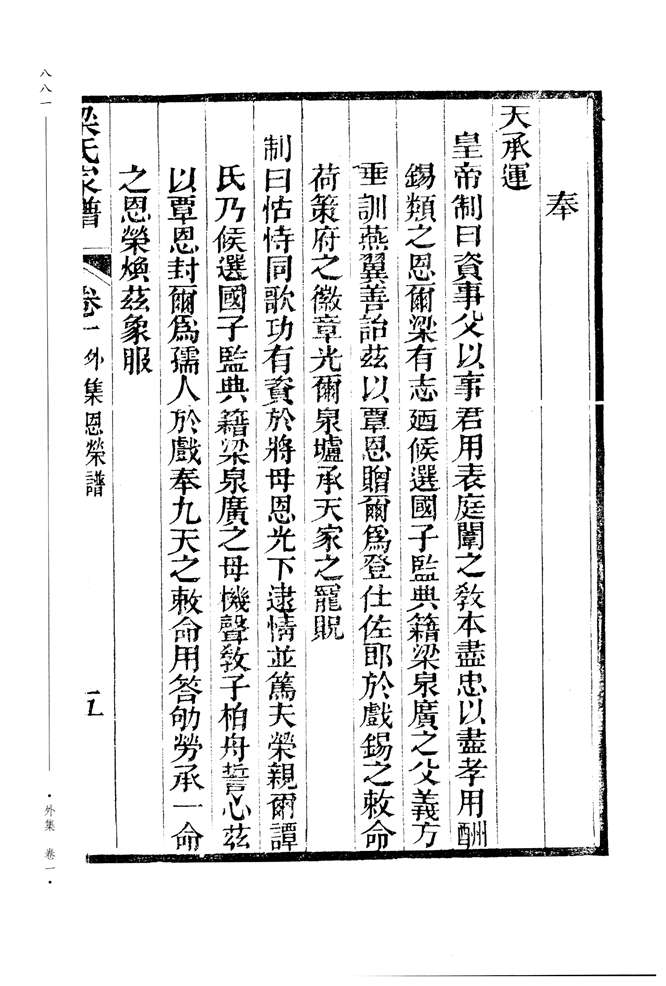 奉
天承運
皇帝制曰資事父以事君用表庭闈之教本盡忠以盡孝用酬
錫類之恩爾梁有志廼候選國子監典籍梁泉廣之父義方
垂訓燕翼善詒茲以覃恩贈爾爲登仕佐郎於戲錫之敕命
荷策府之徽章光爾泉壚承天家之寵貺
制曰怙恃同歌功有資於將母恩光下逮情並篤夫榮親爾譚
氏乃候選國子監典籍梁泉廣之母機聲敎子柏舟誓心茲
以覃恩封爾爲孺人於戲奉九天之敕命用答劬勞承一命
之恩榮煥茲象服
梁氏家譜 卷一 外集恩榮譜
八八一
·外集 卷一·